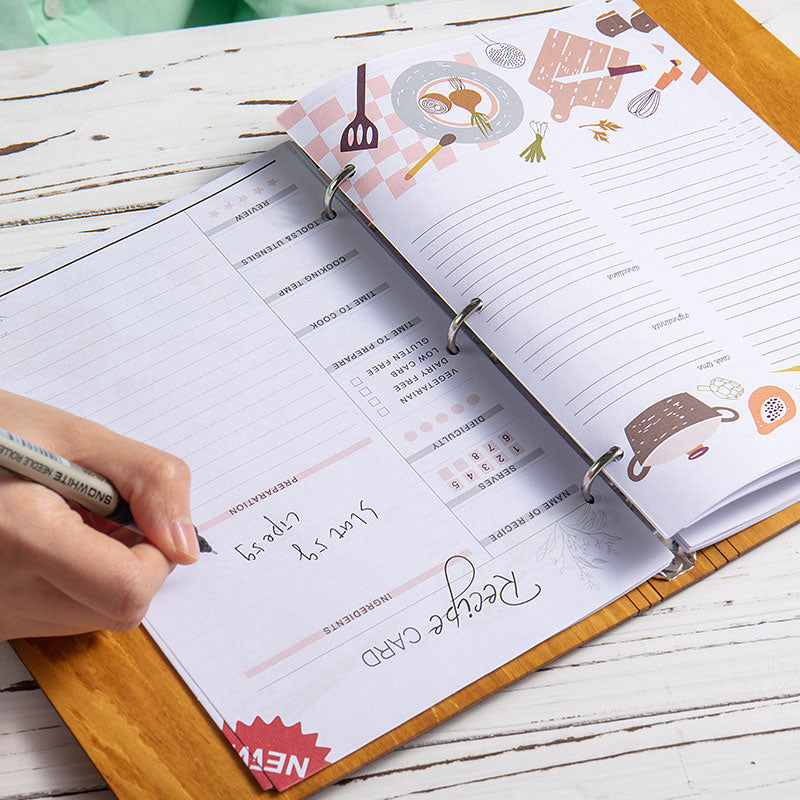 Recipe CARD
NAME OF RECIPE
SERVES
1 2 3 4 5 6 7
DIFFICULTY
VEGETARIAN
DAIRY FREE
LOW CARB
GLUTEN FREE
TIME TO PREPARE
TIME TO COOK
COOKING TEMP
TOOLS& UTENSILS
REVIEW
INGREDIENTS
PREPARATION
NEW
SNOWHITE NEEDLE ROLLE
cook time
ingredients
directions